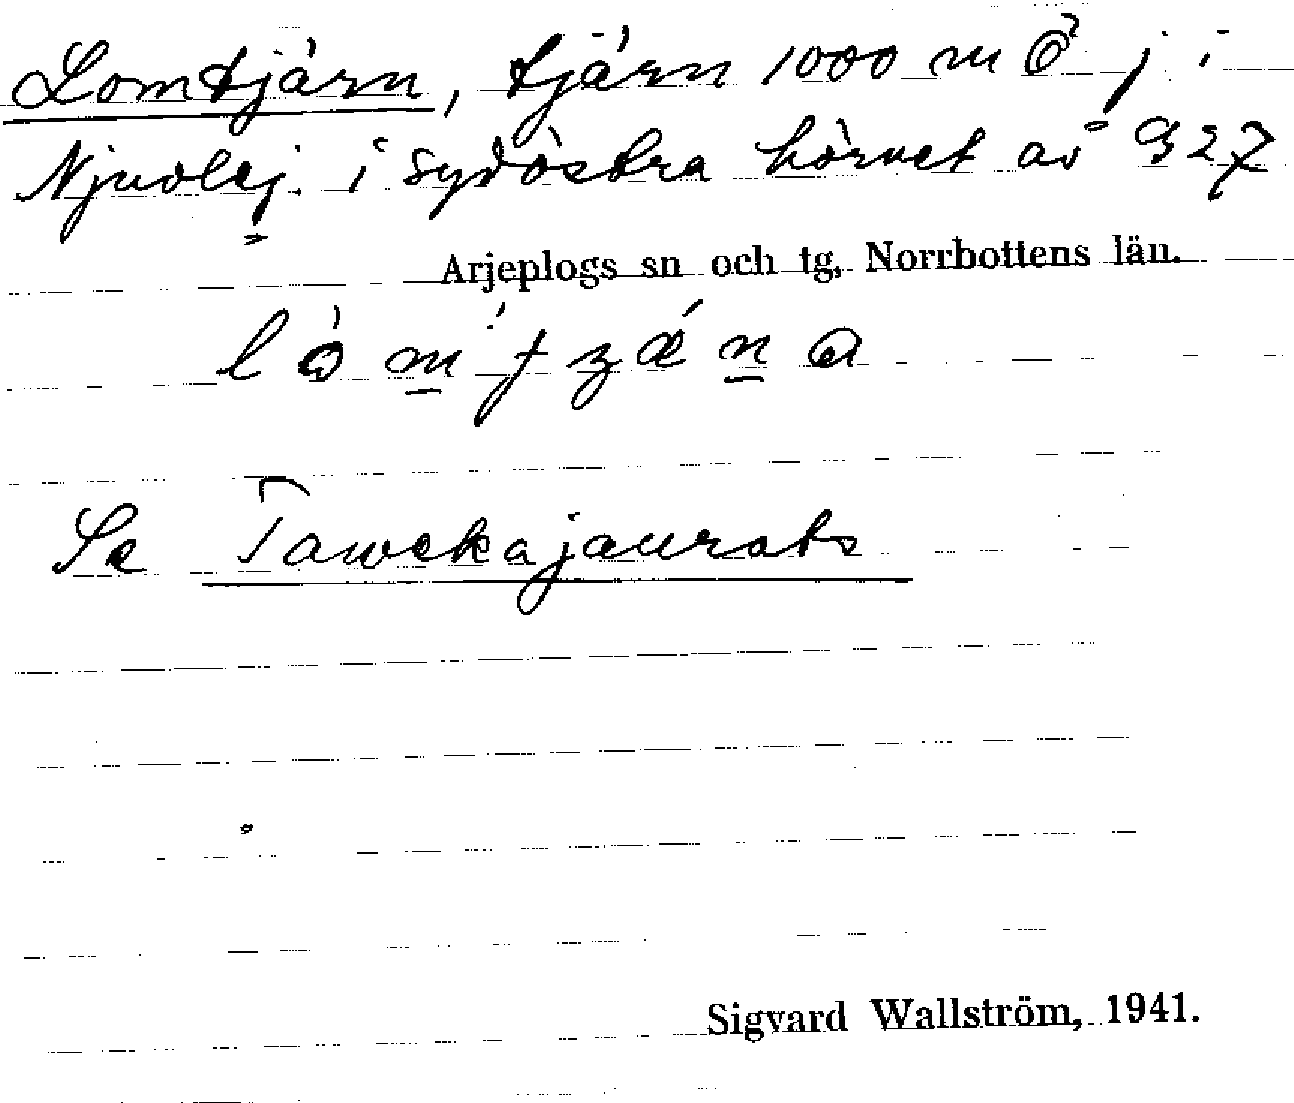 Lomtjärn, tjärn 1000 m Ö j i
Njuolej. i sydöstra hörnet av 927
Arjeplogs sn och tg, Norrbottens län.
Se Tawekajaurats
Sigvard Wallström, 1941.